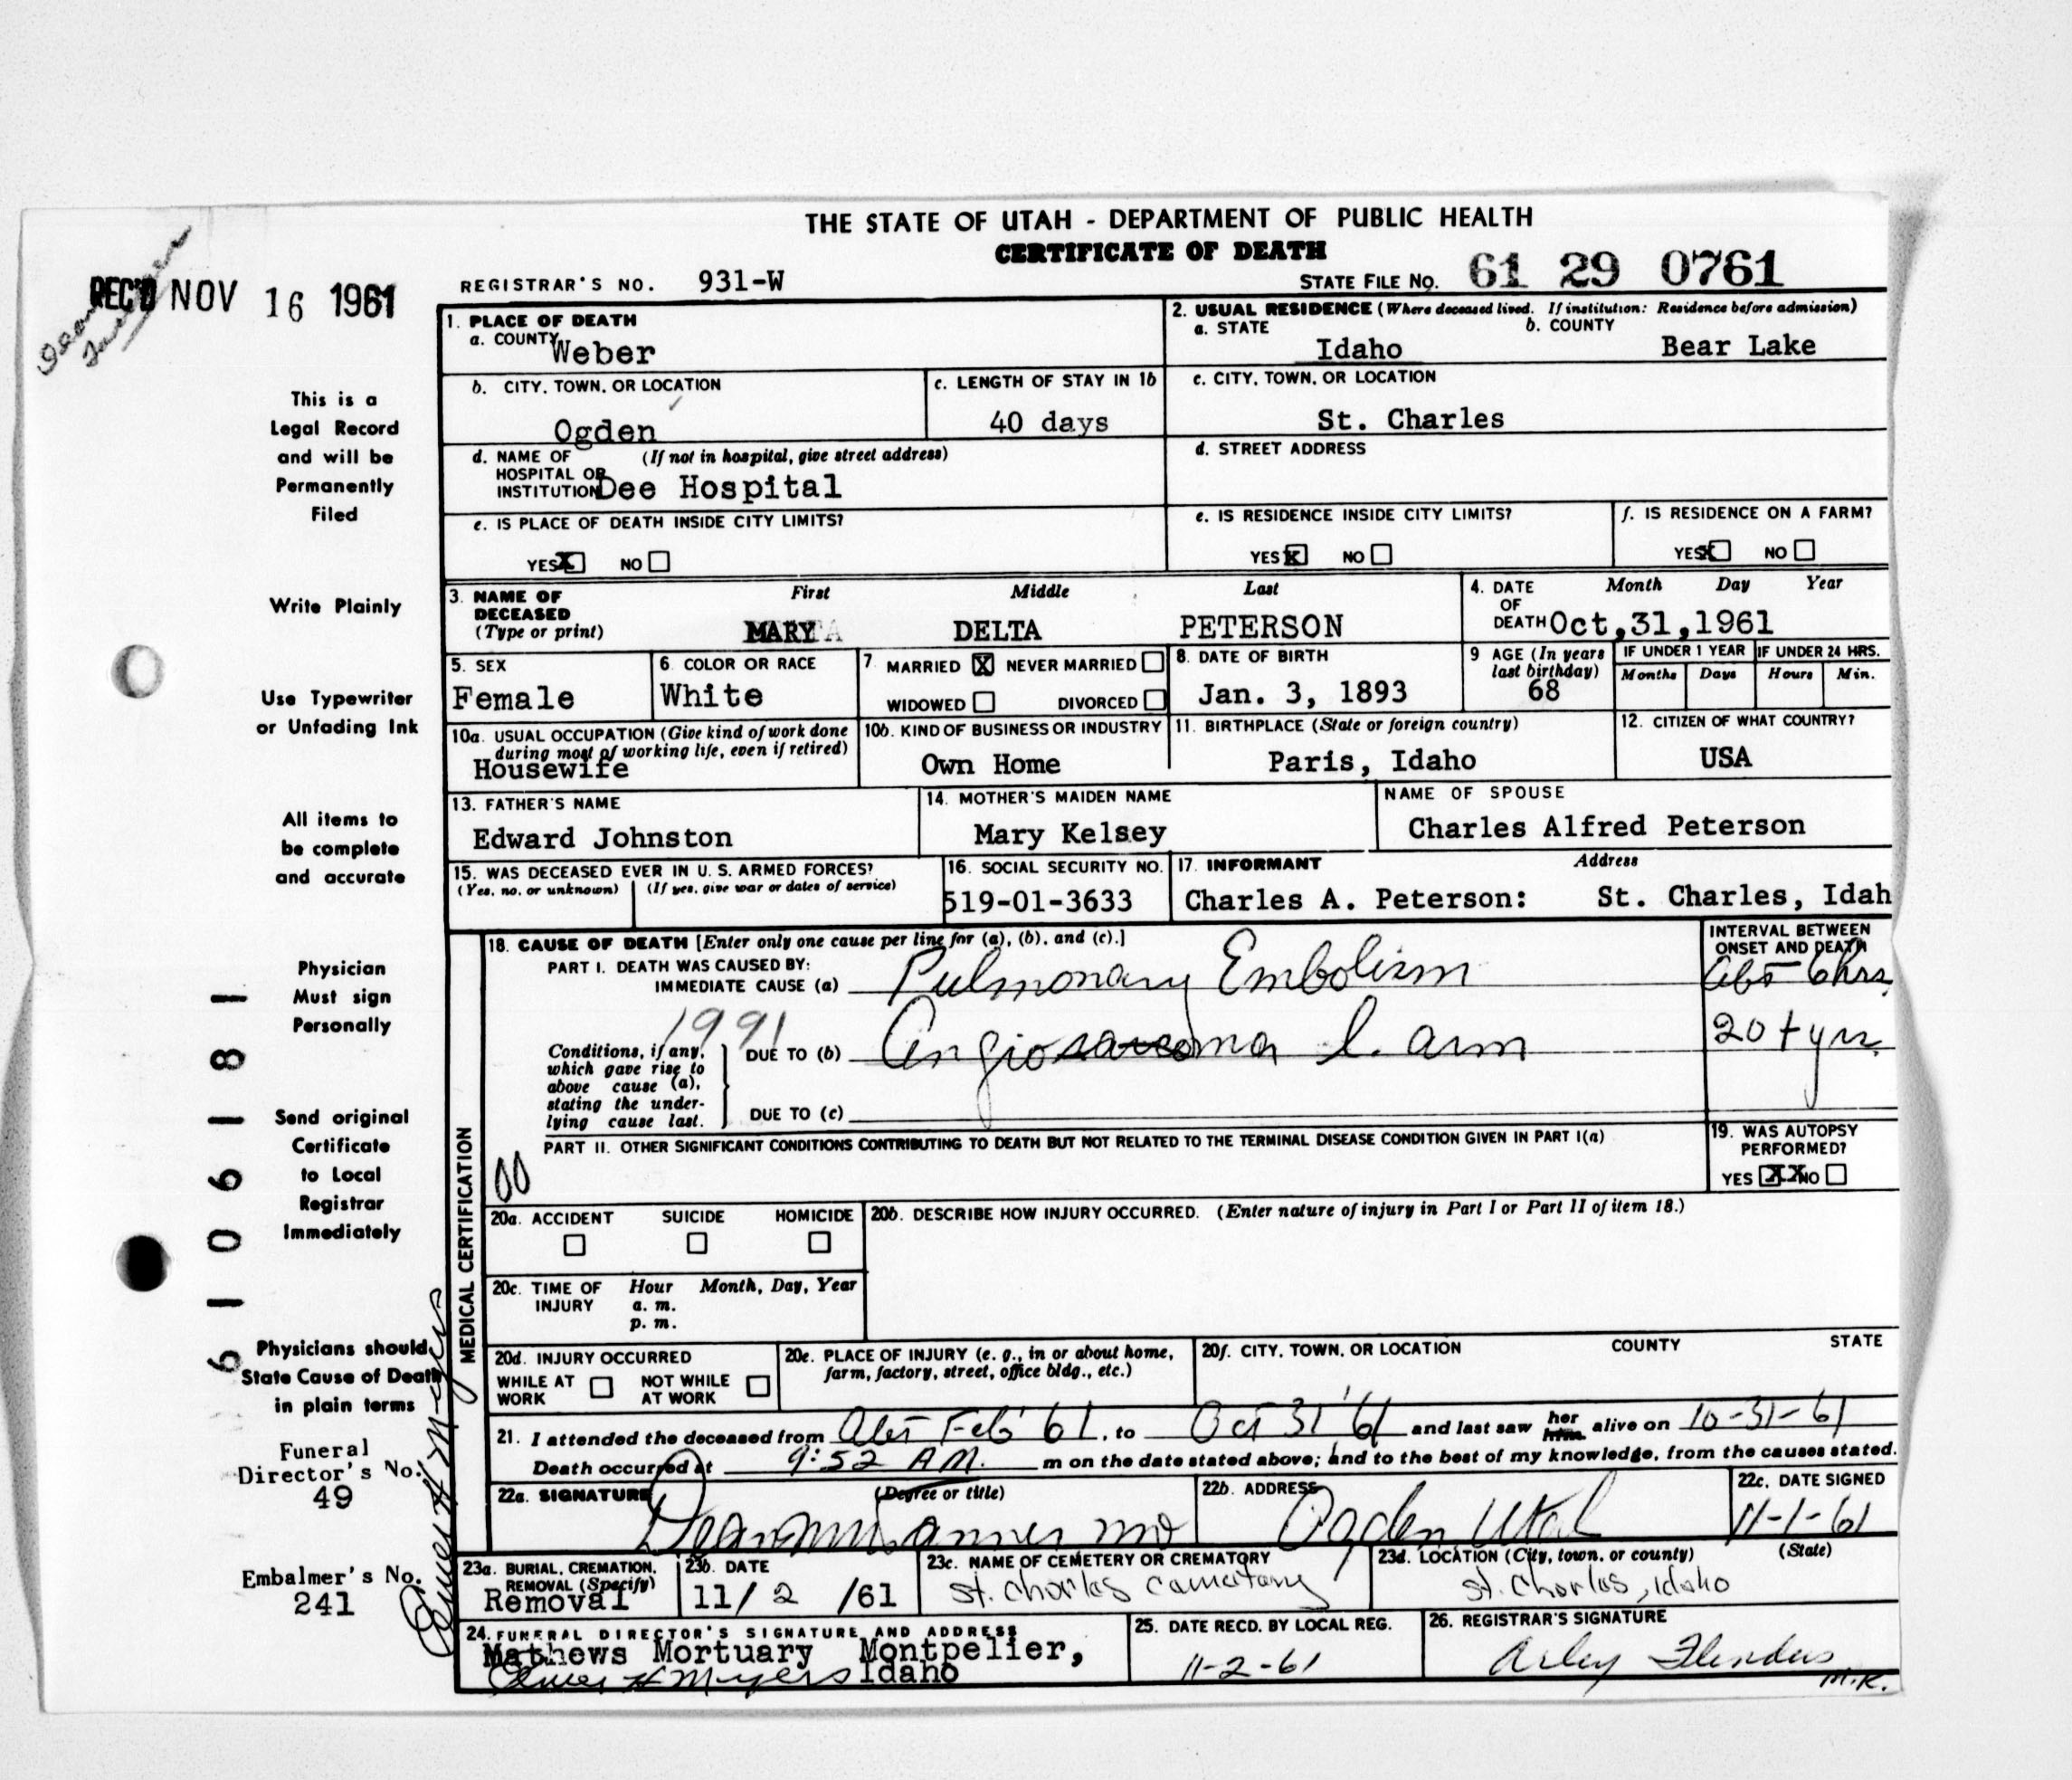 THE STATE OF UTAH - DEPARTMENT OF PUBLIC HEALTH
CERTIFICATE OF DEATH
REC'D NOV 16 1961
REGISTRAR'S NO. 931-W
STATE FILE NO. 61 29 0761
This is a
Legal Record
and will be
Permanently
Filed
Write Plainly
Use Typewriter
or Unfading Ink
All items to
be complete
and accurate
Physician
Must sign
Personally
Send original
Certificate
to Local
Registrar
Immediately
Physicians should
State Cause of Death
in plain terms
Funeral
Director's No.
49
Embalmer's No.
241
1. PLACE OF DEATH
a. COUNTY Weber
2. USUAL RESIDENCE (Where deceased lived. If institution: Residence before admission)
a. STATE Idaho b. COUNTY Bear Lake
b. CITY, TOWN, OR LOCATION Ogden
c. LENGTH OF STAY IN 1b 40 days
c. CITY, TOWN, OR LOCATION St. Charles
d. NAME OF (If not in hospital, give street address)
HOSPITAL OR
INSTITUTION Dee Hospital
d. STREET ADDRESS
e. IS PLACE OF DEATH INSIDE CITY LIMITS?
YES X NO
e. IS RESIDENCE INSIDE CITY LIMITS?
YES X NO
f. IS RESIDENCE ON A FARM?
YES X NO
3. NAME OF
DECEASED
(Type or print)
First Middle Last
MARY DELTA PETERSON
4. DATE
OF
DEATH
Month Day Year
Oct,31,1961
5. SEX Female
6. COLOR OR RACE White
7. MARRIED X NEVER MARRIED
WIDOWED DIVORCED
8. DATE OF BIRTH Jan. 3, 1893
9 AGE (In years
last birthday) 68
IF UNDER 1 YEAR IF UNDER 24 HRS.
Months Days Hours Min.
10a. USUAL OCCUPATION (Give kind of work done
during most of working life, even if retired)
Housewife
10b. KIND OF BUSINESS OR INDUSTRY
Own Home
11. BIRTHPLACE (State or foreign country)
Paris, Idaho
12. CITIZEN OF WHAT COUNTRY?
USA
13. FATHER'S NAME
Edward Johnston
14. MOTHER'S MAIDEN NAME
Mary Kelsey
NAME OF SPOUSE
Charles Alfred Peterson
15. WAS DECEASED EVER IN U. S. ARMED FORCES?
(Yes, no, or unknown) (If yes, give war or dates of service)
16. SOCIAL SECURITY NO.
519-01-3633
17. INFORMANT Address
Charles A. Peterson: St. Charles, Idah
MEDICAL CERTIFICATION
18. CAUSE OF DEATH [Enter only one cause per line for (a), (b), and (c).]
PART I. DEATH WAS CAUSED BY:
IMMEDIATE CAUSE (a) Pulmonary Embolism
INTERVAL BETWEEN
ONSET AND DEATH
abt 6 hrs.
1991
Conditions, if any,
which gave rise to
above cause (a),
stating the under-
lying cause last.
DUE TO (b) Angiosarcoma l. arm
20 + yrs.
DUE TO (c)
PART II. OTHER SIGNIFICANT CONDITIONS CONTRIBUTING TO DEATH BUT NOT RELATED TO THE TERMINAL DISEASE CONDITION GIVEN IN PART I(a)
00
19. WAS AUTOPSY
PERFORMED?
YES XX NO
20a. ACCIDENT SUICIDE HOMICIDE
20b. DESCRIBE HOW INJURY OCCURRED. (Enter nature of injury in Part I or Part II of item 18.)
20c. TIME OF
INJURY
Hour Month, Day, Year
a. m.
p. m.
20d. INJURY OCCURRED
WHILE AT
WORK
NOT WHILE
AT WORK
20e. PLACE OF INJURY (e. g., in or about home,
farm, factory, street, office bldg., etc.)
20f. CITY, TOWN, OR LOCATION COUNTY STATE
21. I attended the deceased from abt Feb '61, to Oct 31 '61 and last saw her him alive on 10-31-61
Death occurred at 9:52 A.M. m on the date stated above; and to the best of my knowledge, from the causes stated.
22a. SIGNATURE (Degree or title)
22b. ADDRESS Ogden Utah
22c. DATE SIGNED
11-1-61
23a. BURIAL, CREMATION,
REMOVAL (Specify)
Removal
23b. DATE
11/ 2 /61
23c. NAME OF CEMETERY OR CREMATORY
St. Charles Cemetary
23d. LOCATION (City, town, or county) (State)
St. Charles, Idaho
24. FUNERAL DIRECTOR'S SIGNATURE AND ADDRESS
Mathews Mortuary Montpelier,
Idaho
25. DATE RECD. BY LOCAL REG.
11-2-61
26. REGISTRAR'S SIGNATURE
Arley Flinders
M.K.
6106181